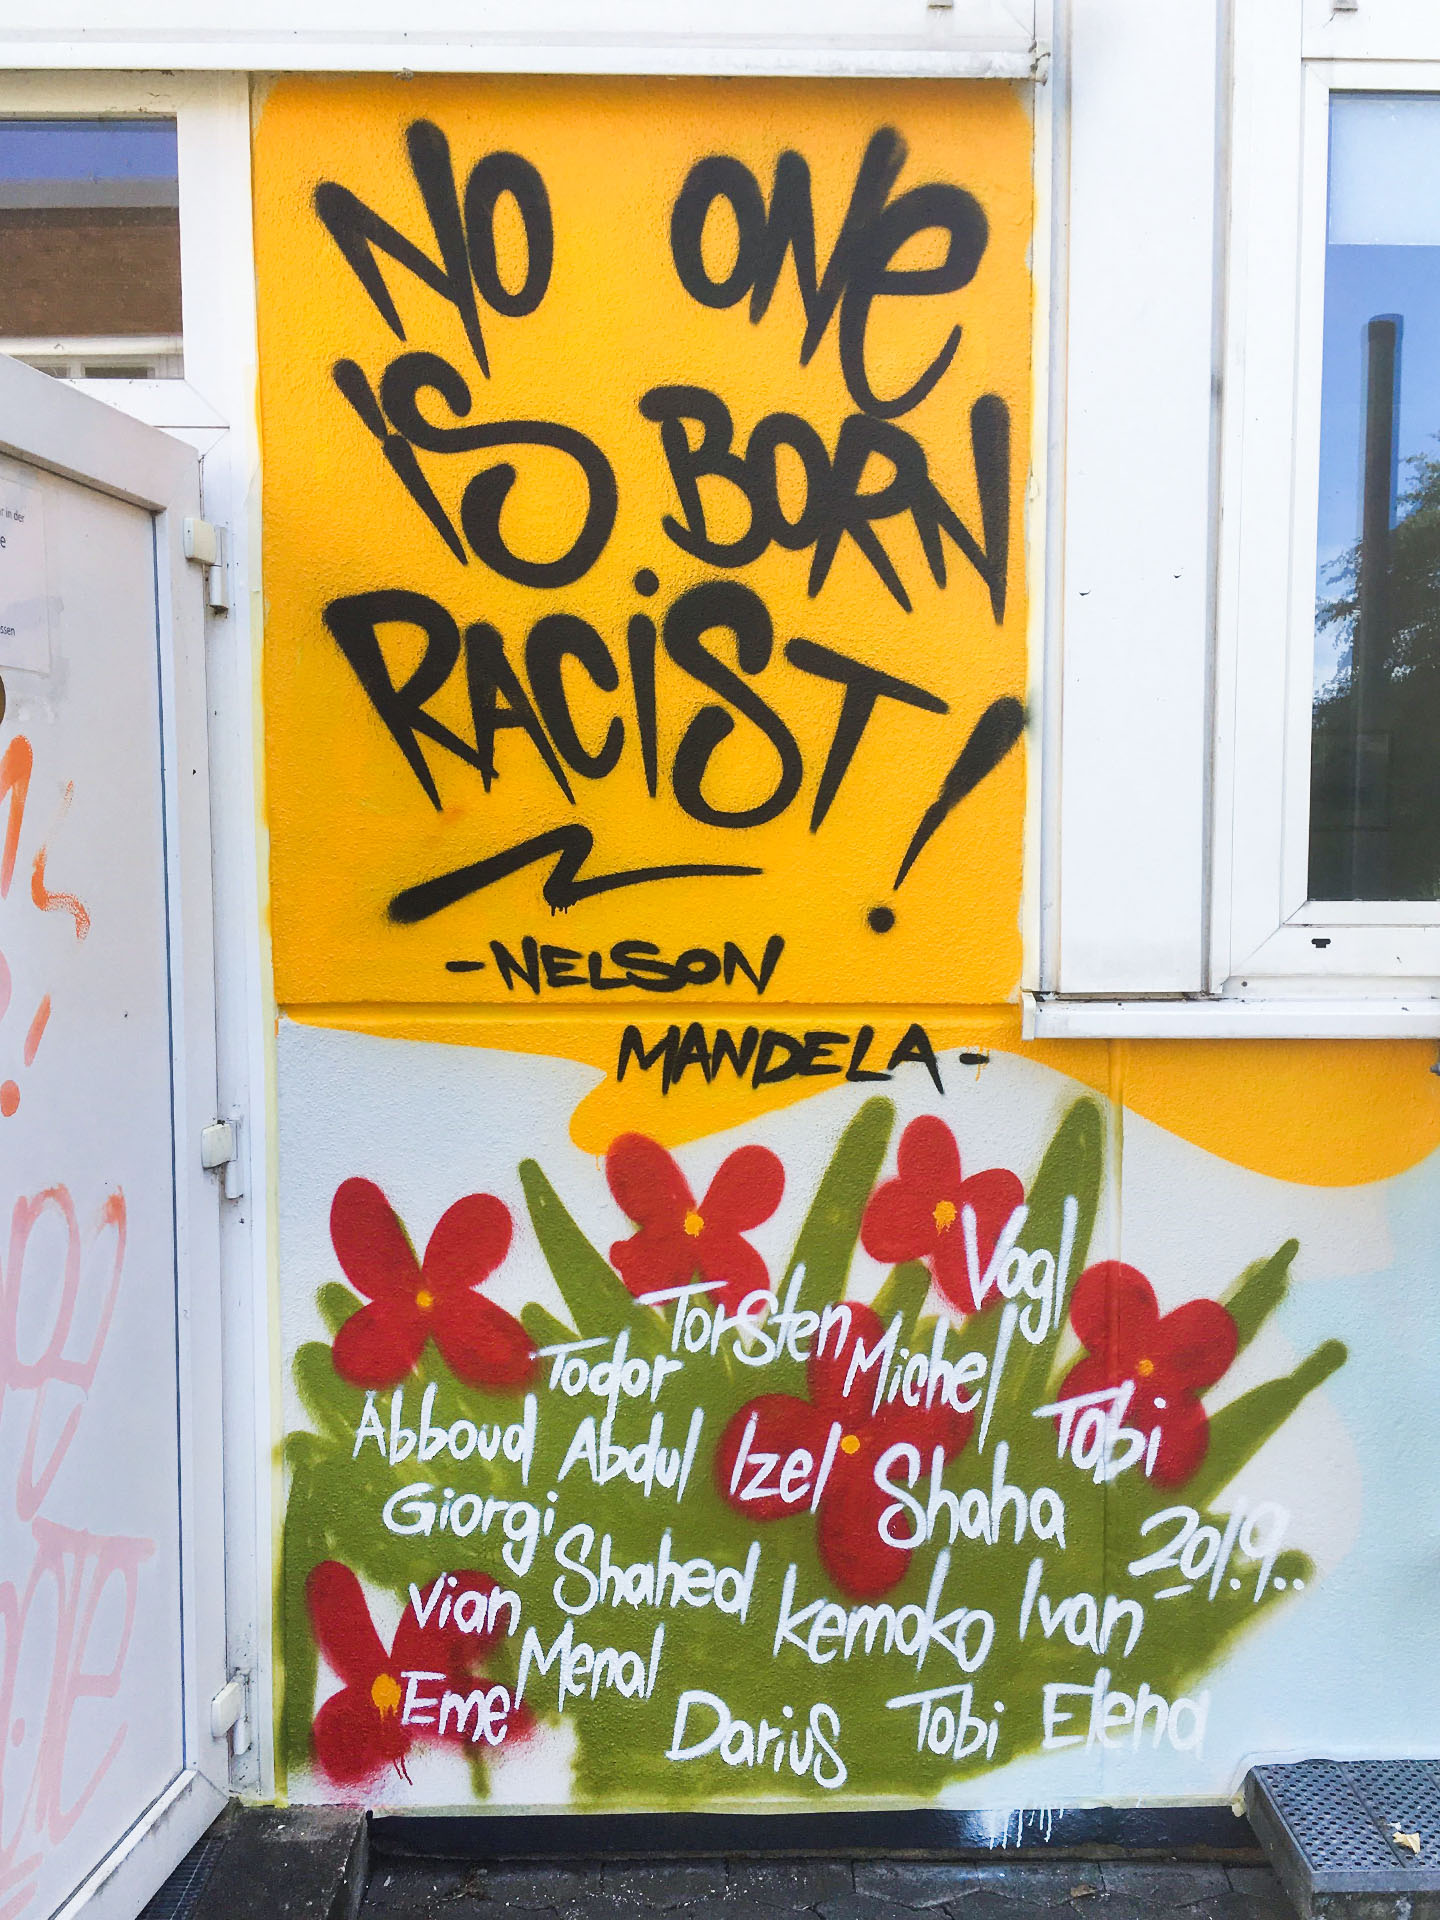 NO ONE
IS BORN
RACIST!
-NELSON
MANDELA-
Vogl
Torsten
Todor
Michel
Tobi
Abboud Abdul Izel Shaha
Giorgi
2019..
Shahed
Vian
Kemoko Ivan
Menal
Eme
Darius Tobi Elena
r in der
e
ssen